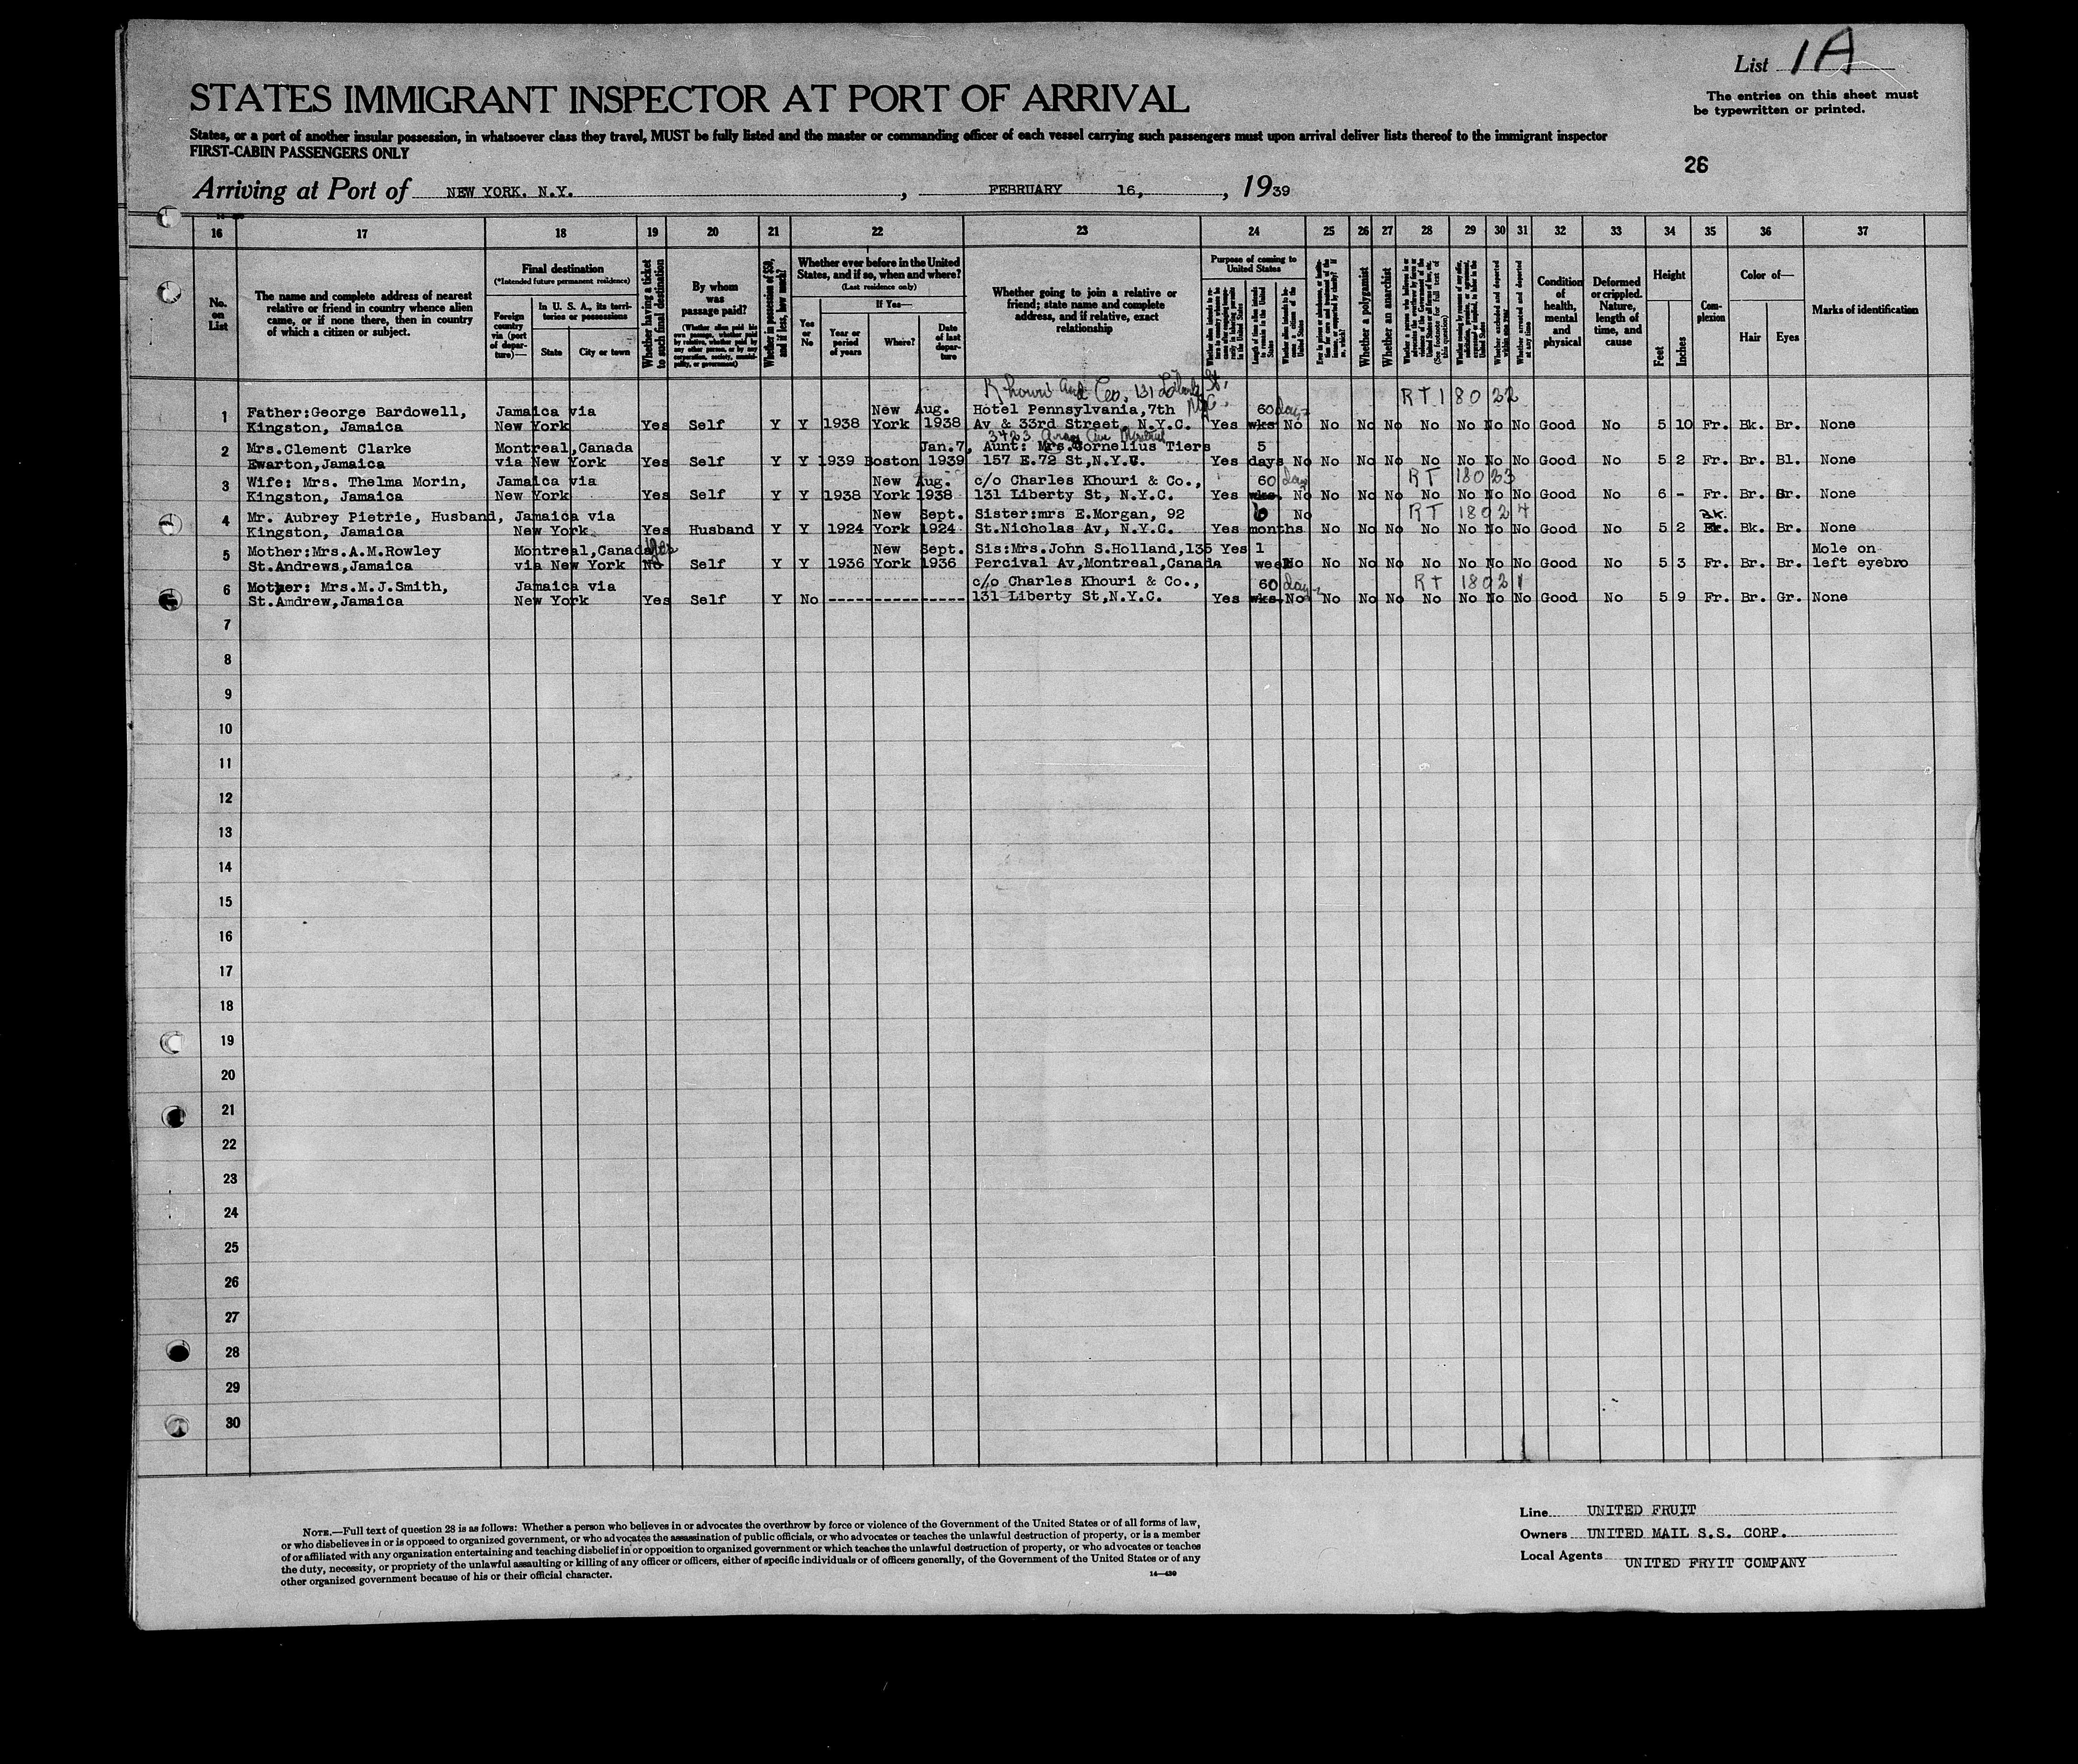 List 1A
The entries on this sheet must
be typewritten or printed.
STATES IMMIGRANT INSPECTOR AT PORT OF ARRIVAL
States, or a port of another insular possession, in whatsoever class they travel, MUST be fully listed and the master or commanding officer of each vessel carrying such passengers must upon arrival deliver lists thereof to the immigrant inspector
FIRST-CABIN PASSENGERS ONLY
26
Arriving at Port of NEW YORK. N.Y. , FEBRUARY 16, , 1939
16 17 18 19 20 21 22 23 24 25 26 27 28 29 30 31 32 33 34 35 36 37
No. on List
The name and complete address of nearest relative or friend in country whence alien came, or if none there, then in country of which a citizen or subject.
Final destination
(*Intended future permanent residence)
Foreign country via (port of departure)—
In U. S. A., its territories or possessions
State
City or town
Whether having a ticket to such final destination
By whom was passage paid?
(Whether alien paid his own passage, whether paid by relative, whether paid by any other person, or by any corporation, society, municipality, or government)
Whether in possession of $50, and if less, how much?
Whether ever before in the United States, and if so, when and where?
(Last residence only)
Yes or No
If Yes—
Year or period of years
Where?
Date of last departure
Whether going to join a relative or friend; state name and complete address, and if relative, exact relationship
Purpose of coming to United States
Length of time alien intends to remain in the United States
Whether alien intends to become a citizen of the United States
Whether a polygamist
Whether an anarchist
(See footnote for full text of this question)
Whether arrested and deported at any time
Condition of health, mental and physical
Deformed or crippled. Nature, length of time, and cause
Height
Feet
Inches
Complexion
Color of—
Hair
Eyes
Marks of identification
Khouri and Co, 131 Liberty St, N.Y.C. RT 18022
1 Father:George Bardowell, Jamaica via New Aug. Hotel Pennsylvania,7th 60 days
Kingston, Jamaica New York Yes Self Y Y 1938 York 1938 Av & 33rd Street, N.Y.C. Yes wks No No No No No No No No Good No 5 10 Fr. Bk. Br. None
3423
2 Mrs.Clement Clarke Montreal,Canada Jan.7, Aunt: Mrs.Cornelius Tiers 5
Ewarton,Jamaica via New York Yes Self Y Y 1939 Boston 1939 157 E.72 St,N.Y.C. Yes days No No No No No No No No Good No 5 2 Fr. Br. Bl. None
3 Wife: Mrs. Thelma Morin, Jamaica via New Aug. c/o Charles Khouri & Co., 60 days RT 18023
Kingston, Jamaica New York Yes Self Y Y 1938 York 1938 131 Liberty St, N.Y.C. Yes wks. No No No No No No No No Good No 6 - Fr. Br. Gr. None
4 Mr. Aubrey Pietrie, Husband, Jamaica via New Sept. Sister:mrs E.Morgan, 92 6 No RT 18024 Bk.
Kingston, Jamaica New York Yes Husband Y Y 1924 York 1924 St.Nicholas Av, N.Y.C. Yes months No No No No No No No Good No 5 2 Bk. Br. None
5 Mother:Mrs.A.M.Rowley Montreal,Canada Yes New Sept. Sis:Mrs.John S.Holland,135 Yes 1 Mole on
St.Andrews,Jamaica via New York No Self Y Y 1936 York 1936 Percival Av,Montreal,Canada week No No No No No No No No Good No 5 3 Fr. Br. Br. left eyebro
6 Mother: Mrs.M.J.Smith, Jamaica via c/o Charles Khouri & Co., 60 days RT 18021
St.Amdrew,Jamaica New York Yes Self Y No ----------------- 131 Liberty St,N.Y.C. Yes wks. No No No No No No No No Good No 5 9 Fr. Br. Gr. None
7
8
9
10
11
12
13
14
15
16
17
18
19
20
21
22
23
24
25
26
27
28
29
30
NOTE.—Full text of question 28 is as follows: Whether a person who believes in or advocates the overthrow by force or violence of the Government of the United States or of all forms of law,
or who disbelieves in or is opposed to organized government, or who advocates the assassination of public officials, or who advocates or teaches the unlawful destruction of property, or is a member
of or affiliated with any organization entertaining and teaching disbelief in or opposition to organized government or which teaches the unlawful destruction of property, or who advocates or teaches
the duty, necessity, or propriety of the unlawful assaulting or killing of any officer or officers, either of specific individuals or of officers generally, of the Government of the United States or of any
other organized government because of his or their official character.
14—430
Line UNITED FRUIT
Owners UNITED MAIL S.S. CORP.
Local Agents UNITED FRYIT COMPANY